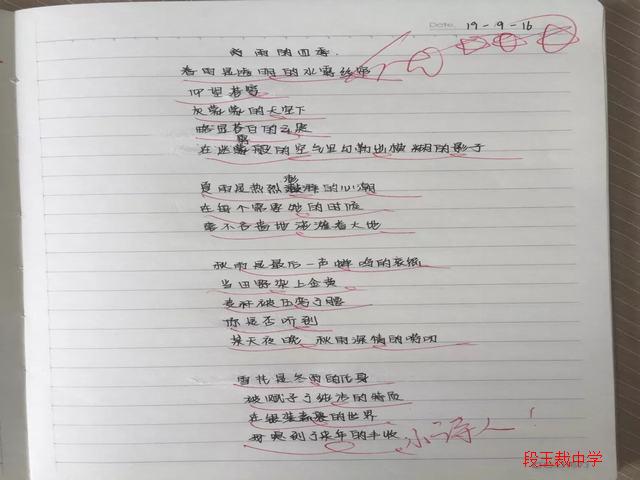 Date. 19-9-16
雨的四季.
春雨是清明的水露丝绸
仰望苍穹
灰蒙蒙的天空下
略显苍白的云层
在迷雾般的空气里勾勒出模糊的影子
夏雨是热烈澎湃的心潮
在每个需要她的时候
毫不吝啬地浇灌着大地
秋雨是最后一声蝉鸣的哀怨
当田野染上金黄
麦秆被压弯了腰
你是否听到
某天夜晚 秋雨深情的呼叨
雪花是冬雨的化身
被赋予了纯洁的特质
在银装素裹的世界
到了来年的丰收
小诗人!
段玉裁中学